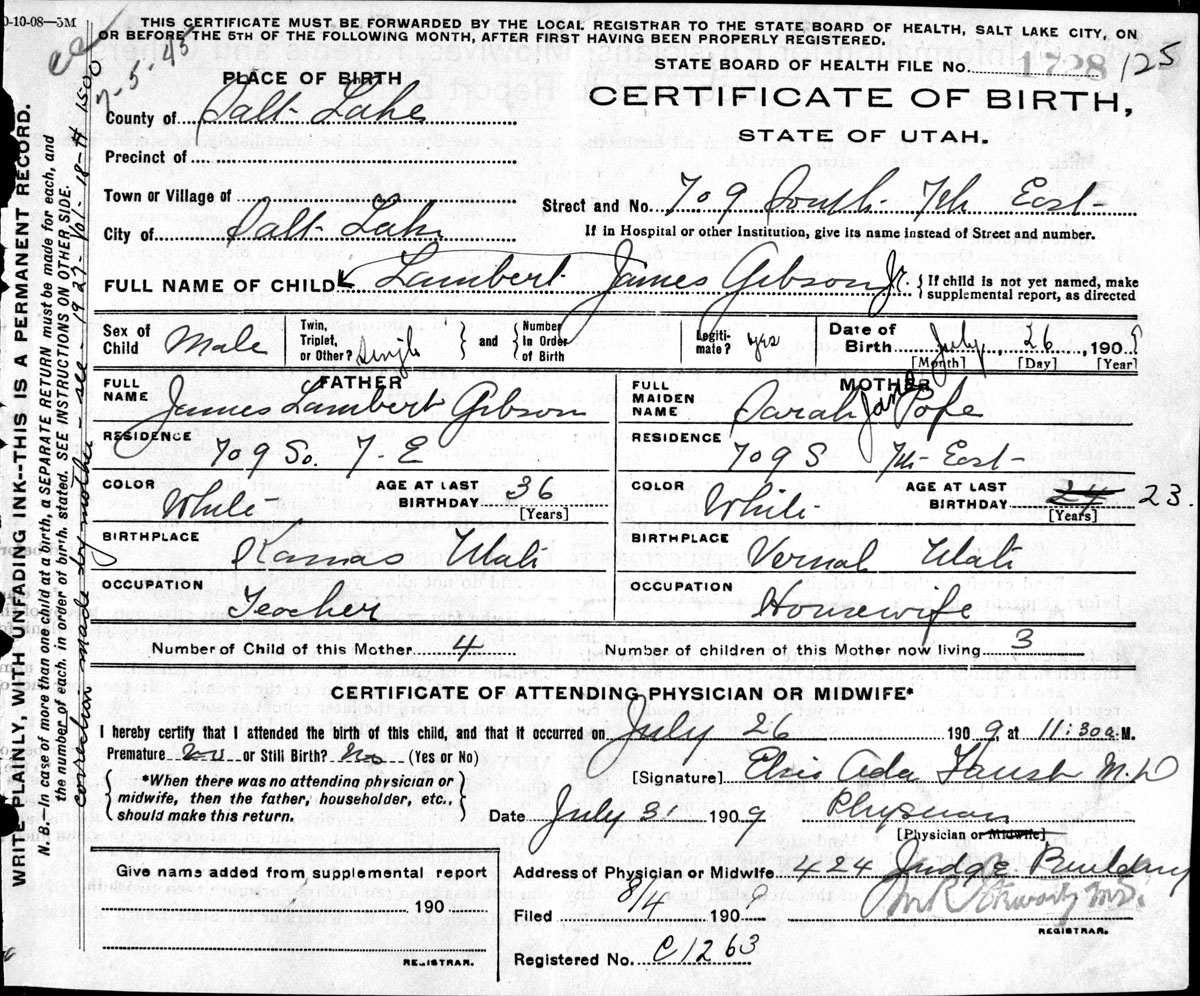 0-10-08—3M
THIS CERTIFICATE MUST BE FORWARDED BY THE LOCAL REGISTRAR TO THE STATE BOARD OF HEALTH, SALT LAKE CITY, ON
OR BEFORE THE 5TH OF THE FOLLOWING MONTH, AFTER FIRST HAVING BEEN PROPERLY REGISTERED.
STATE BOARD OF HEALTH FILE No. 1728 125
7-5-45
PLACE OF BIRTH
CERTIFICATE OF BIRTH,
STATE OF UTAH.
County of Salt Lake
Precinct of
Town or Village of
Street and No. 709 South 7th East
City of Salt Lake
If in Hospital or other Institution, give its name instead of Street and number.
FULL NAME OF CHILD Lambert James Gibson Jr. { If child is not yet named, make
supplemental report, as directed
Sex of Child Male
Twin, Triplet, or Other? Single } and { Number in Order of Birth
Legiti- mate? yes
Date of Birth July, 26, 1909
[Month] [Day] [Year]
FATHER
FULL NAME James Lambert Gibson
MOTHER
FULL MAIDEN NAME Sarah Jane Pope
RESIDENCE 709 So. 7 E
RESIDENCE 709 S 7th East
COLOR White
AGE AT LAST BIRTHDAY 36
[Years]
COLOR White
AGE AT LAST BIRTHDAY 24 23.
[Years]
BIRTHPLACE Kamas Utah
BIRTHPLACE Vernal Utah
OCCUPATION Teacher
OCCUPATION Housewife
Number of Child of this Mother 4
Number of children of this Mother now living 3
CERTIFICATE OF ATTENDING PHYSICIAN OR MIDWIFE*
I hereby certify that I attended the birth of this child, and that it occurred on July 26 1909 at 11:30 a. M.
Premature no or Still Birth? No (Yes or No)
*When there was no attending physician or
midwife, then the father, householder, etc.,
should make this return.
[Signature] Elsie Ada Faust M.D
Date July 31 1909 Physician
[Physician or Midwife]
Give name added from supplemental report
190
REGISTRAR.
Address of Physician or Midwife 424 Judge Building
Filed 8/4 1909
REGISTRAR.
Registered No. C1263
WRITE PLAINLY, WITH UNFADING INK--THIS IS A PERMANENT RECORD.
N. B.—In case of more than one child at a birth, a SEPARATE RETURN must be made for each, and
the number of each, in order of birth, stated. SEE INSTRUCTIONS ON OTHER SIDE.
correction made by mother - see - 1927